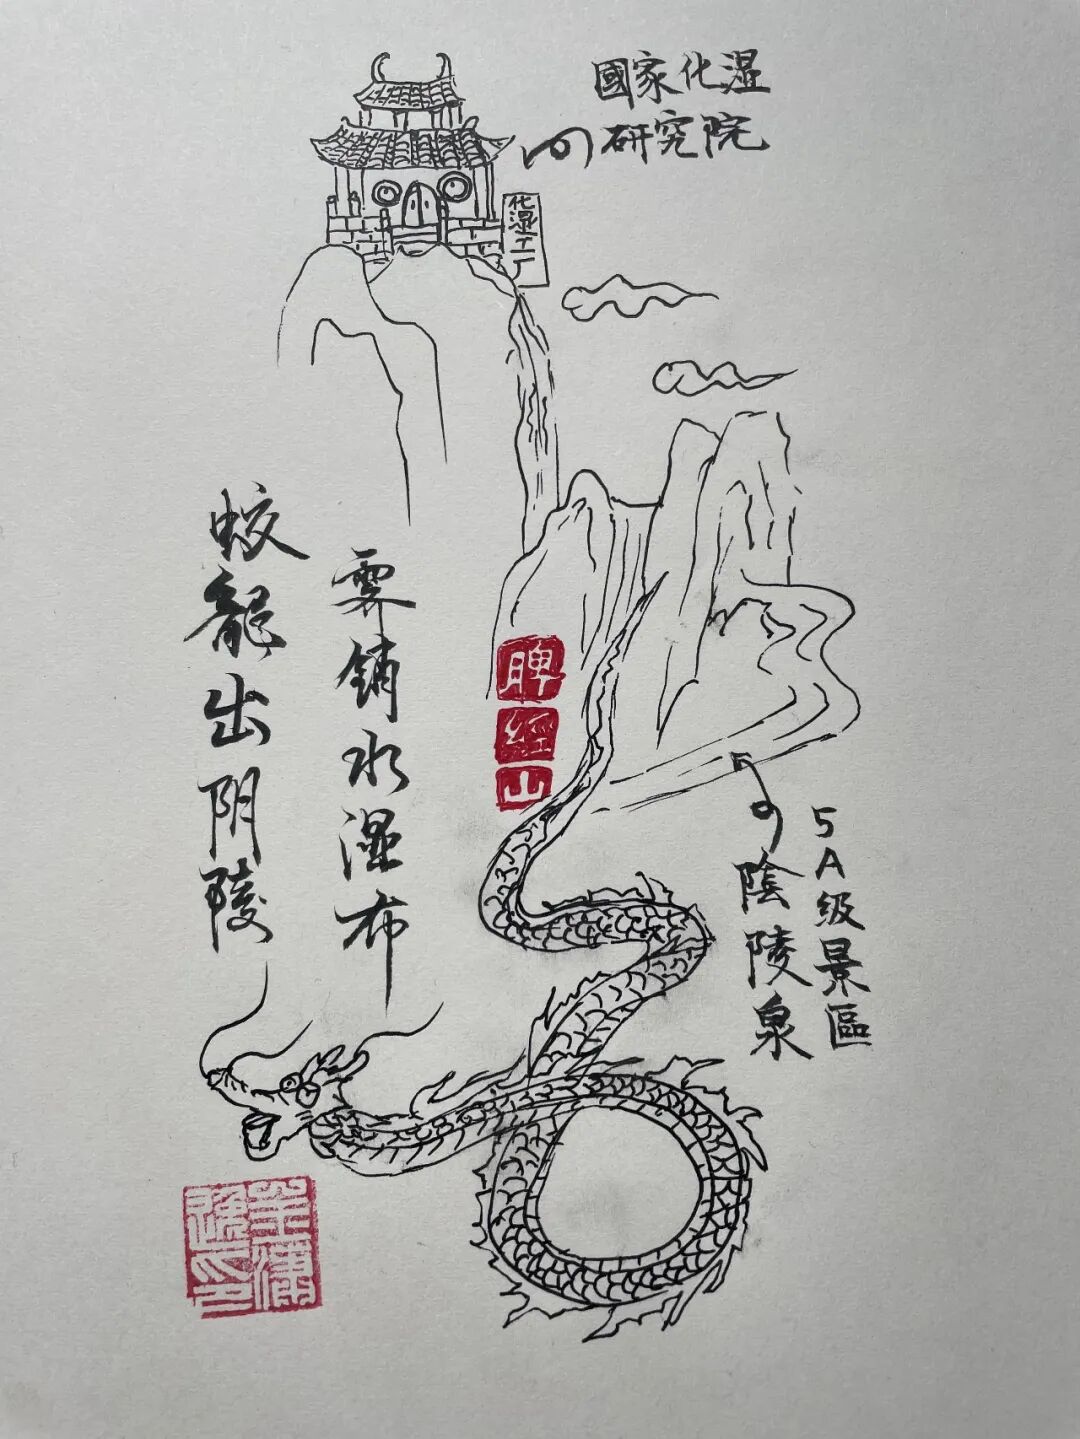 國家化湿
研究院
化湿工厂
蛟龍出阴陵
霁铺水湿布
脾經山
5A级景區
陰陵泉